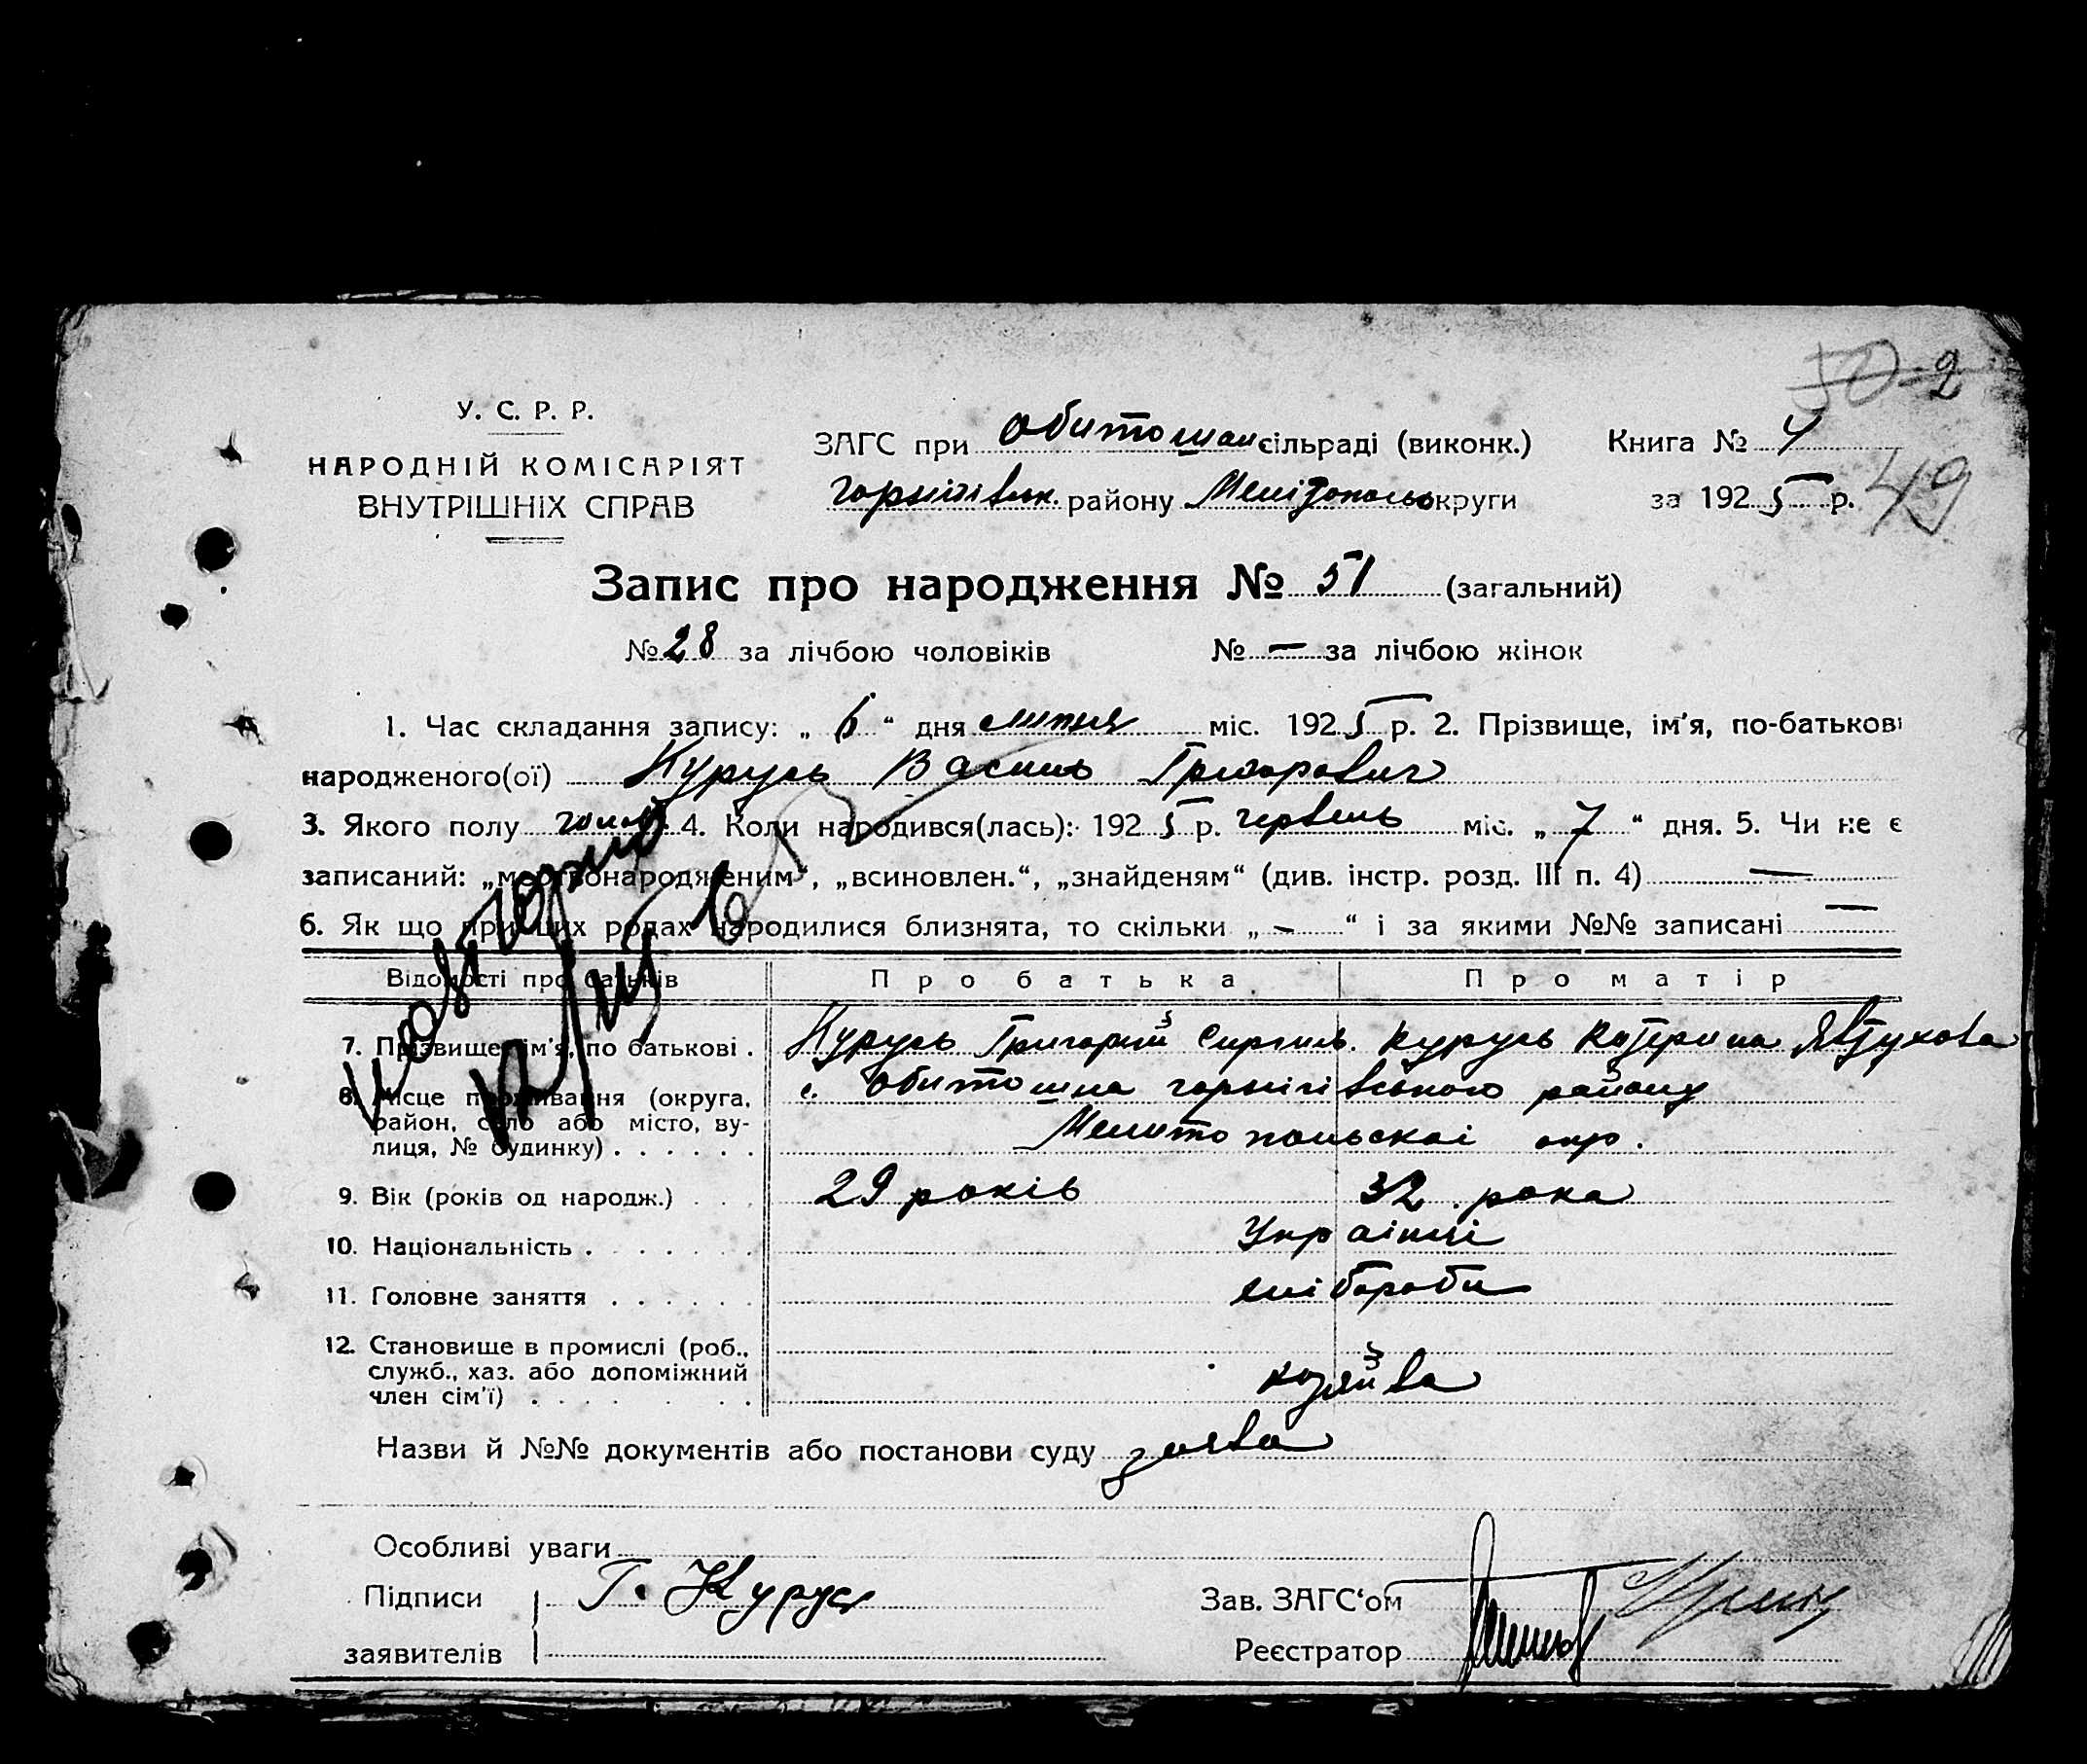 50 2
У. С. Р. Р.
НАРОДНІЙ КОМІСАРІЯТ
ВНУТРІШНІХ СПРАВ
ЗАГС при Обиточан сільраді (виконк.) Книга № 4
Чернігівськ. району Меліtопольс округи за 1925 р. 49
Запис про народження № 51 (загальний)
№ 28 за лічбою чоловіків № — за лічбою жінок
1. Час складання запису: „ 6 “ дня липня міс. 1925 р. 2. Прізвище, ім'я, по-батькові
народженого(ої) Курусь Василь Григорович
3. Якого полу чолов. 4. Коли народився(лась): 1925 р. червень міс. „ 7 “ дня. 5. Чи не є
записаний: „мертвонародженим“, „всиновлен.“, „знайденям“ (див. інстр. розд. III п. 4) —
6. Як що при цих родах народилися близнята, то скільки „ — “ і за якими №№ записані —
Відомості про батьків Про батька Про матір
7. Прізвище, ім'я, по батькові . Курусь Григорий Сиргий. Курусь Катерина Явтухова
8. Місце проживання (округа, район, село або місто, вулиця, № будинку) . . . . . . с. Обиточна чернігівського району
Мелитопольскаі окр.
9. Вік (років од народж.) . . . 29 років 32 рока
10. Національність . . . . . . . Украінці
11. Головне заняття . . . . . . хліборобы
12. Становище в промислі (роб.,
служб., хаз. або допоміжний
член сім'ї) . . . . . . . хозяйва
Назви й №№ документів або постанови суду заява
Особливі уваги
Підписи Г. Курус Зав. ЗАГС'ом
заявителів Реєстратор